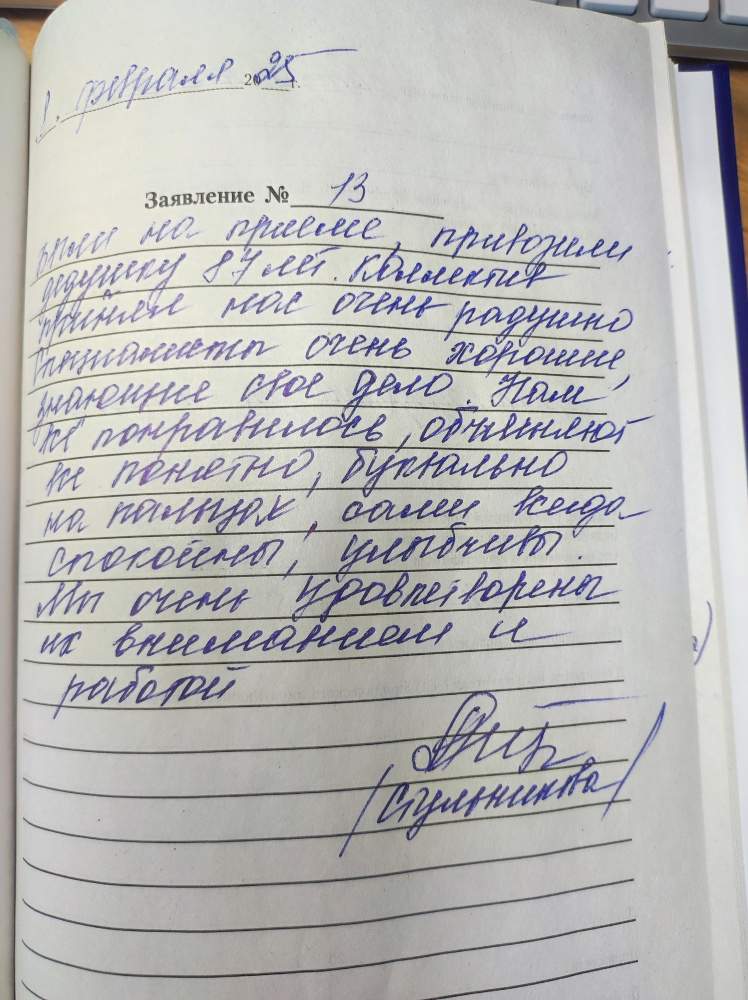 1. февраля 2025 г.
Заявление № 13
Были на приеме, привозили
дедушку 87 лет. Коллектив
принял нас очень радушно
Специалисты очень хорошие,
знающие свое дело. Нам
все понравилось, объясняют
все понятно, буквально
на пальцах, сами всегда
спокойны, улыбчивы.
Мы очень удовлетворены
их вниманием и
работой
/Стульникова/